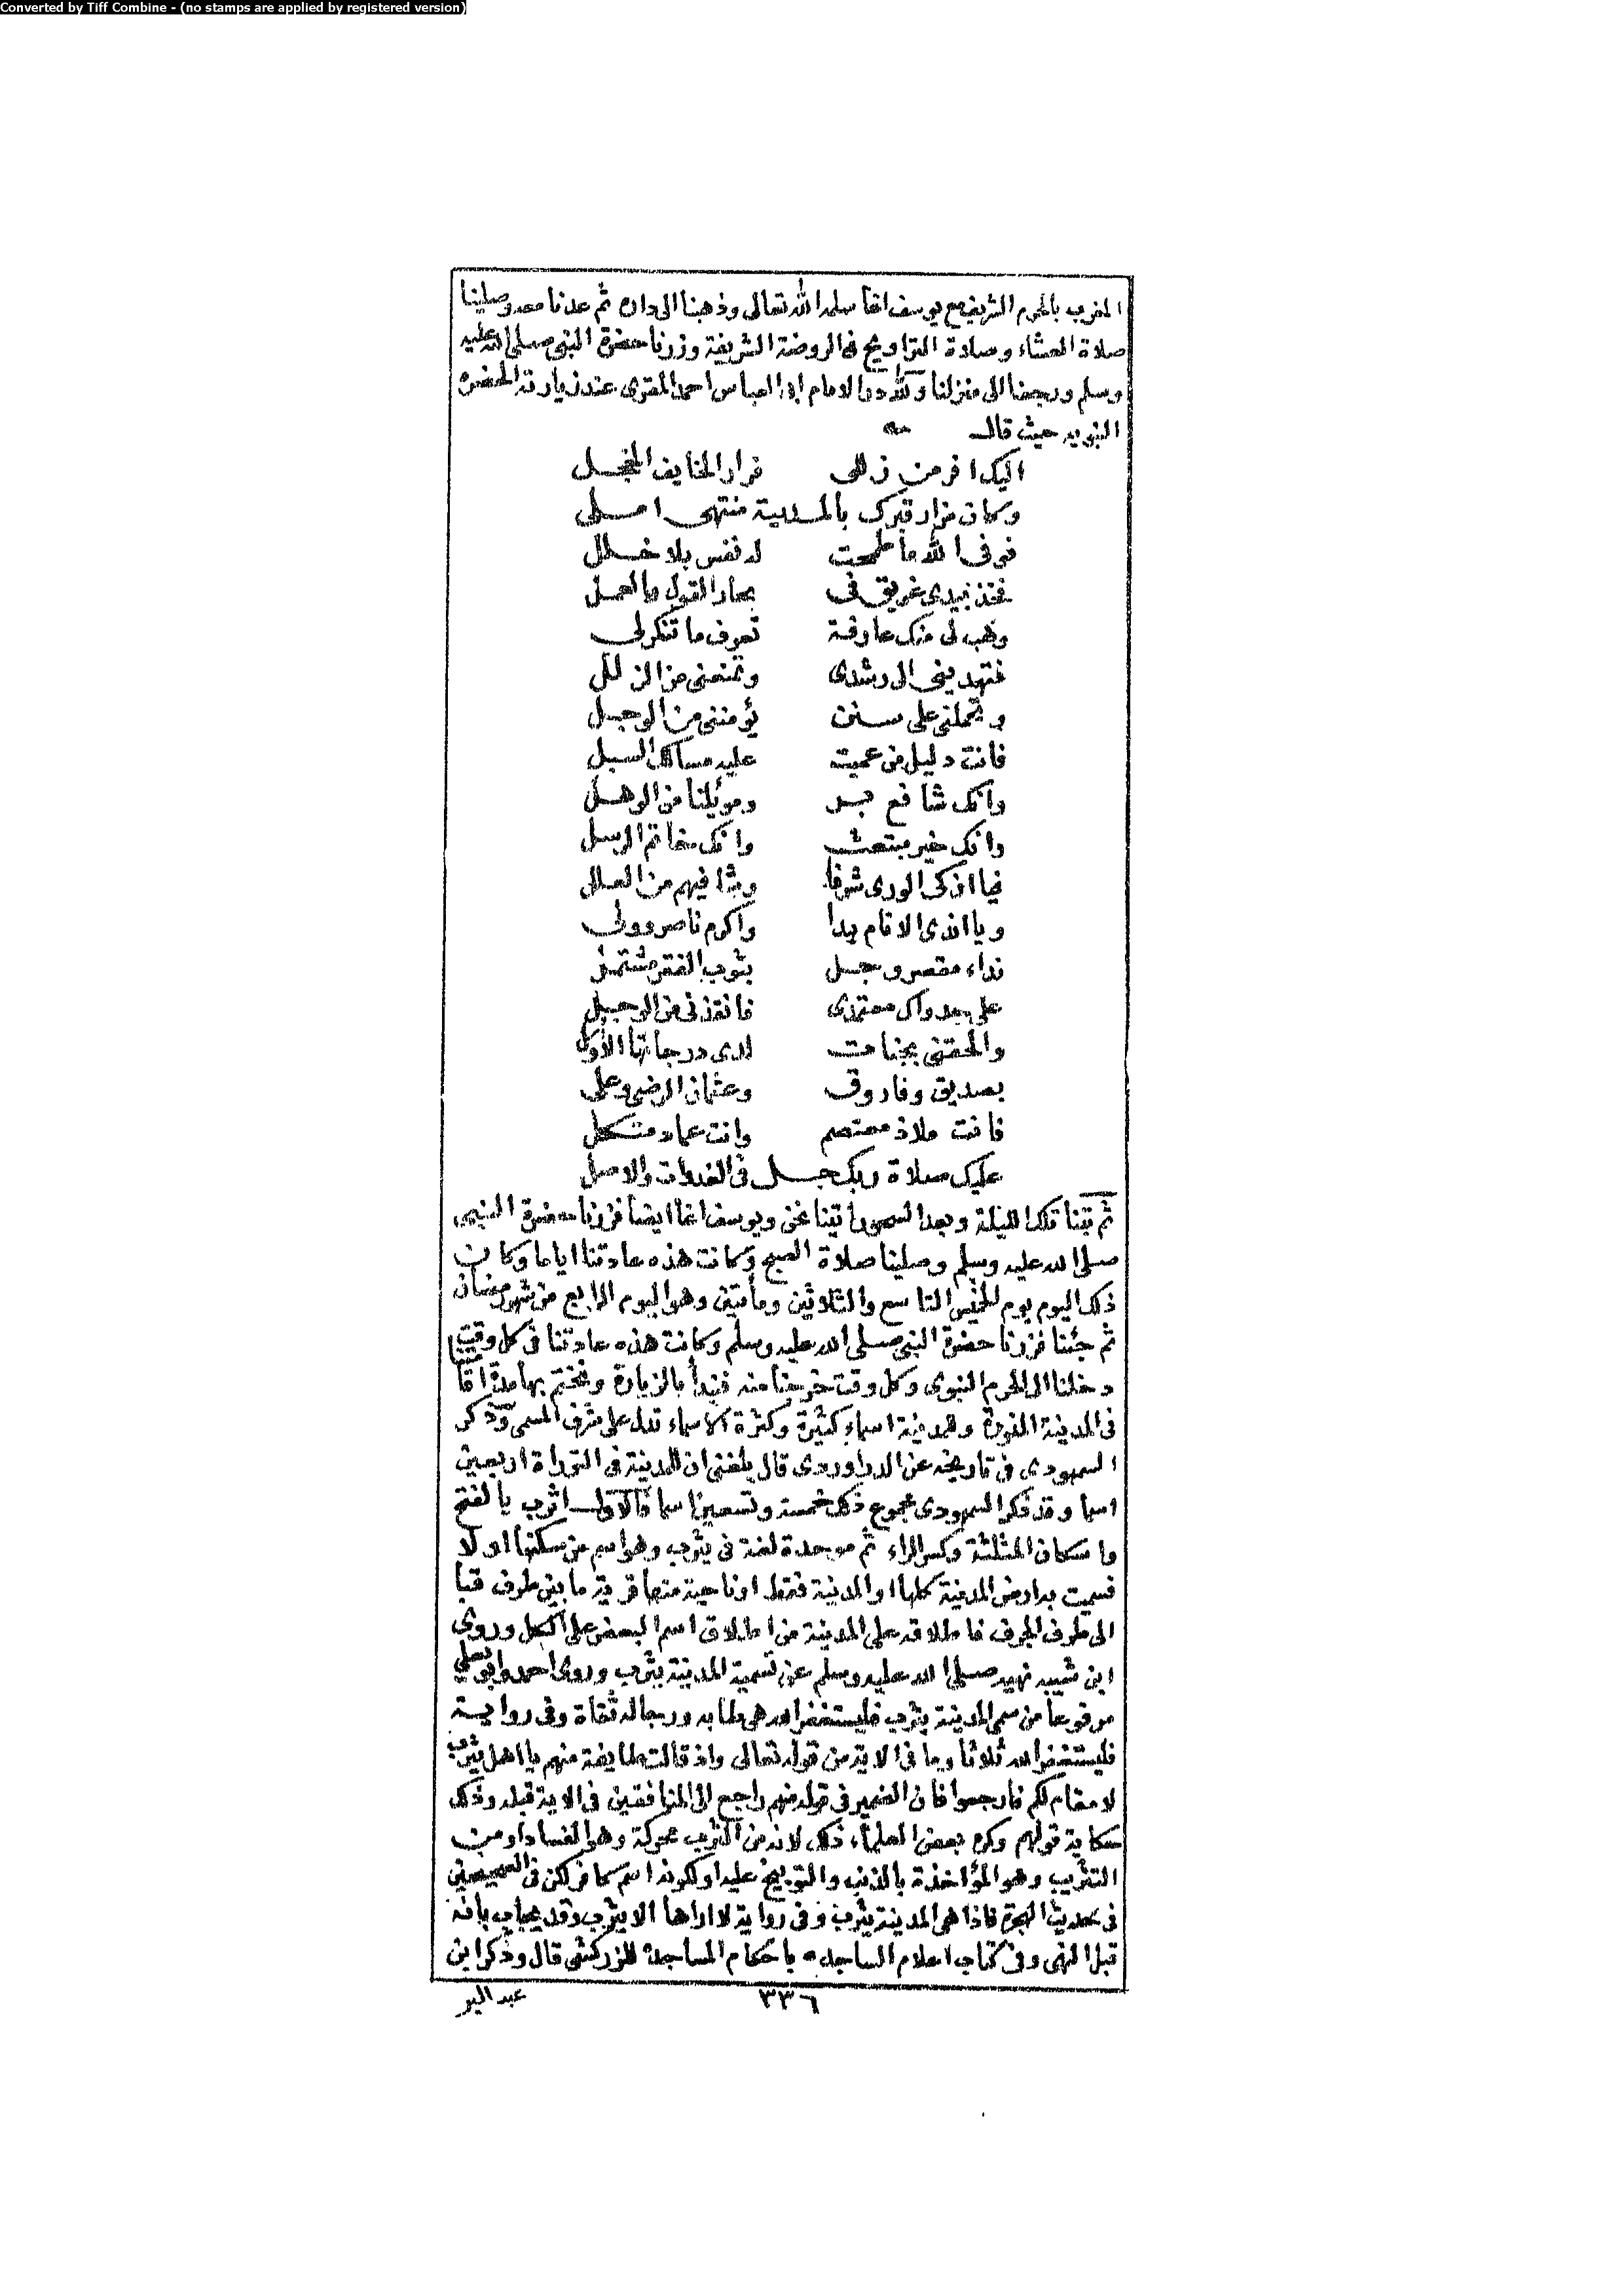 Converted by Tiff Combine - (no stamps are applied by registered version)
المغرب بالحرم الشريف مع يوسف اغا سلمه الله تعالى وذهبنا الى داره ثم عدنا معه وصلينا
صلاة العشاء وصلاة التراويح في الروضة الشريفة وزرنا حضرة النبي صلى الله عليه
وسلم ورجعنا الى منزلنا ولله در الامام ابي العباس احمد المقرى عند زيارته الحضرة
النبويه حيث قال
اليك افر من زللى فرار الخايف الخجل
وكان مزار قبرك بالمدينة منتهى املى
فوفى الله ما طمحت له نفس بلا خلل
فخذ بيدى غريق فى بحار القول والعمل
وهب لى منك عارفة تعرف ما تنكر لى
فتهدينى الى رشدى وتمنعنى من الزلل
وتحملنى على سنن يؤمننى من الوجل
فانت دليل من عميت عليه مسالك السبل
وانك شافع بر وموئلنا من الوهل
وانك خير مبتعث وانك خاتم الرسل
فيا ازكى الورى شرفا وشافيهم من العلل
ويا اندى الانام يدا واكرم ناصر وولى
نداء مقصر وجل بثوب الفقر مشتمل
على جدواك معتمدى فانقذنى من الوجل
والحقنى بجنات لدى درجاتها الاول
بصديق وفاروق وعثمان الرضى وعلى
فانت ملاذ معتصم وانت عماد متكل
عليك صلاة ربك جل فى الغدوات والاصل
ثم بتنا تلك الليلة وبعد السحور اتينا نحن ويوسف اغا ايضا فزرنا حضرة النبي
صلى الله عليه وسلم وصلينا صلاة الصبح وكانت هذه عادتنا اياما وكان
ذلك اليوم يوم الخميس التاسع والثلاثين ومأتين وهو اليوم الرابع من شهر رمضان
ثم جئنا فزرنا حضرة النبي صلى الله عليه وسلم وكانت هذه عادتنا فى كل وقت
دخلنا الى الحرم النبوى وكل وقت خرجنا منه فنبدأ بالزيارة ونختم بها مدة اقامتنا
فى المدينة المنورة وللمدينة اسماء كثيرة وكثرة الاسماء تدل على شرف المسمى وذكر
السمهودى فى تاريخه عن الدراوردى قال بلغنى ان للمدينة فى التوراة اربعين
اسما وقد ذكر السمهودى مجموع ذلك خمسة وتسعين اسما فالاول اثرب بالفتح
واسكان المثلثة وكسر الراء ثم موحدة لغة فى يثرب وهو اسم من سكنها اولا
فسميت به ارض المدينة كلها او المدينة فقط او ناحية منها قرية ما بين طرف قبا
الى طرف الجرف فاطلاقه على المدينة من اطلاق اسم البعض على الكل وروى
ابن شبيبه نهيه صلى الله عليه وسلم عن تسمية المدينة بيثرب وروى احمد وابو يعلي
مرفوعا من سمى المدينة يثرب فليستغفر الله هى طابه ورجاله ثقاة وفى رواية
فليستغفر الله ثلاثا وما فى الاية من قوله تعالى واذ قالت طايفة منهم يا اهل يثرب
لا مقام لكم فارجعوا فان الضمير فى قوله منهم راجع الى المنافقين فى الاية قبله وذلك
حكاية قولهم وكره بعض العلماء ذلك لانه من الثرب محركة وهو الفساد او من
التثريب وهو المؤاخذة بالذنب والتوبيخ عليه او لكونه اسم كافر لكن فى الصحيحين
فى حديث الهجرة فاذا هى المدينة يثرب وفى رواية لا اراها الا يثرب وقد يجاب بانه
قبل النهى وفى كتاب اعلام الساجد باحكام المساجد للزركشى قال وذكر ابن
عبد البر
٣٣٦